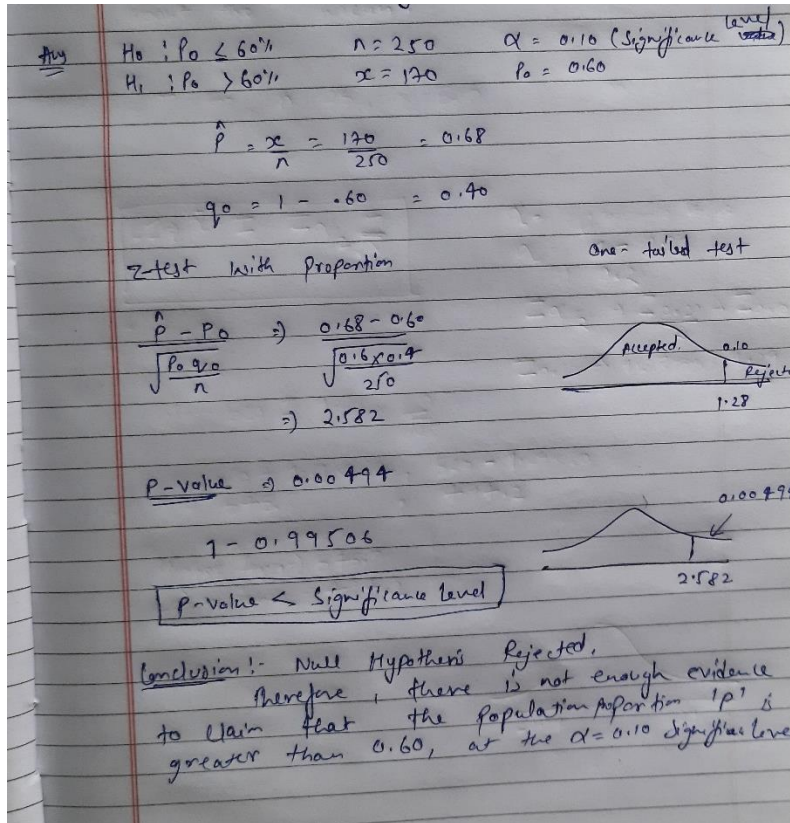 Ans H₀ : P₀ ≤ 60% n = 250 α = 0.10 (Significance level)
H₁ : P₀ > 60% x = 170 P₀ = 0.60
p̂ = x/n = 170/250 = 0.68
q₀ = 1 - .60 = 0.40
Z-test with Proportion One-tailed test
(p̂ - P₀)/√(P₀q₀/n) ⇒ (0.68 - 0.60)/√(0.6×0.4/250)
Accepted. 0.10
Reject
1.28
⇒ 2.582
P-value ⇒ 0.00494
0.00494
1 - 0.99506
2.582
P-value < Significance Level
Conclusion :- Null Hypothesis Rejected.
Therefore, there is not enough evidence
to claim that the population proportion 'p' is
greater than 0.60, at the α = 0.10 significance level